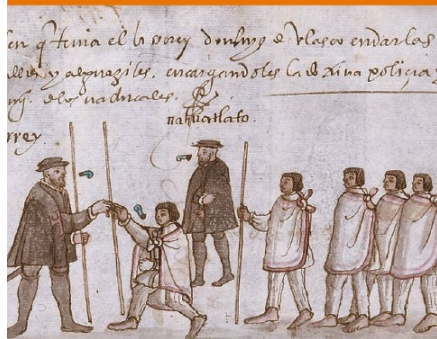 en q̃ tenia el bi sorey don luys de Velasco en dar las
alles y alguaziles. encargandoles la doxina policia y
naturales.
nahuatlato.
rrey.